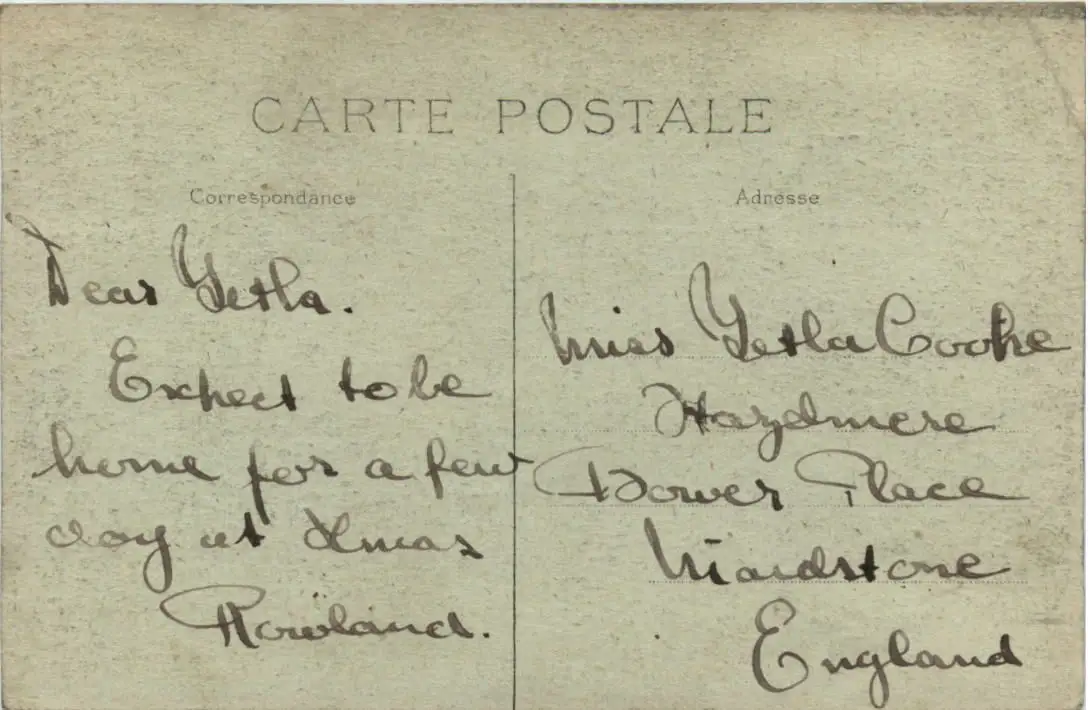 CARTE POSTALE
Correspondance
Dear Yetla.
Expect to be
home for a few
day at Xmas
Rowland.
Adresse
Miss Yetla Cooke
Hazelmere
Bower Place
Maidstone
England